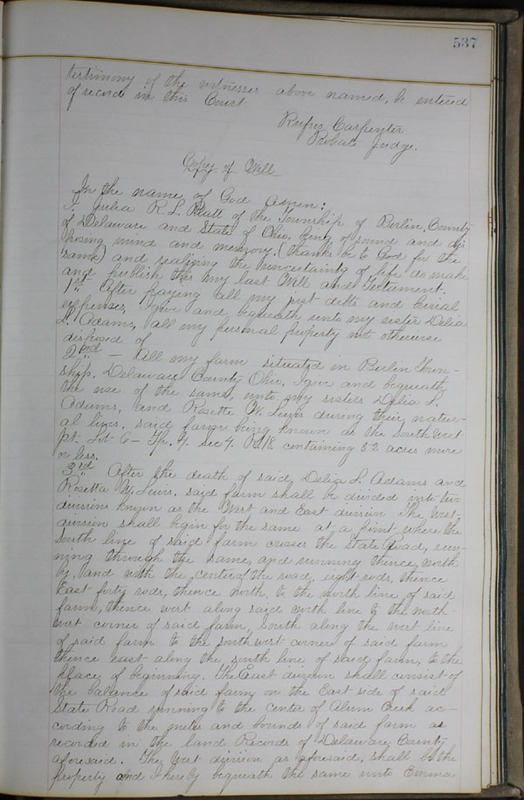 537
testimony of the witnesses above named, be entered
of record in this Court
Rufus Carpenter
Probate Judge.
Copy of Will
In the name of God Amen:
I Julia R. L. of the Township of Berlin, County
of Delaware and State of Ohio, being of sound and dis
posing mind and memory, (thanks be to God for the
same) and realizing the uncertainty of life do make
and publish this my last Will and Testament.
1st After paying all my just debts and burial
expenses, I give and bequeath unto my sister Delia
L. Adams, all my personal property not otherwise
disposed of
2nd - All my farm situated in Berlin Town-
ship, Delaware County Ohio, I give and bequeath
the use of the same, unto my sisters Delia L.
Adams, and Rosetta W. during their natur-
al lives, said farm being known as the South West
pt. Lot 6 - Tp. 4. Sec 4 R. 18 containing 52 acres more
or less.
3rd After the death of said, Delia L. Adams and
Rosetta W. said farm shall be divided into two
divisions known as the West and East division The West
division shall begin for the same at a point, where the
South line of said farm crosses the State Road, run-
ning through the same, and running thence North
by, and with the center of the road, eight rods, thence
East forty rods, thence North, to the north line of said
farm, thence west along said north line to the North
west corner of said farm, South along the west line
of said farm to the south west corner of said farm
thence east along the south line of said farm, to the
place of beginning. The East division shall consist of
the balance of said farm on the East side of said
State Road running to the center of Alum Creek ac-
cording to the metes and bounds of said farm as
recorded in the Land Records of Delaware County
aforesaid. The West division as aforesaid, shall be the
property and I hereby bequeath the same unto Emma